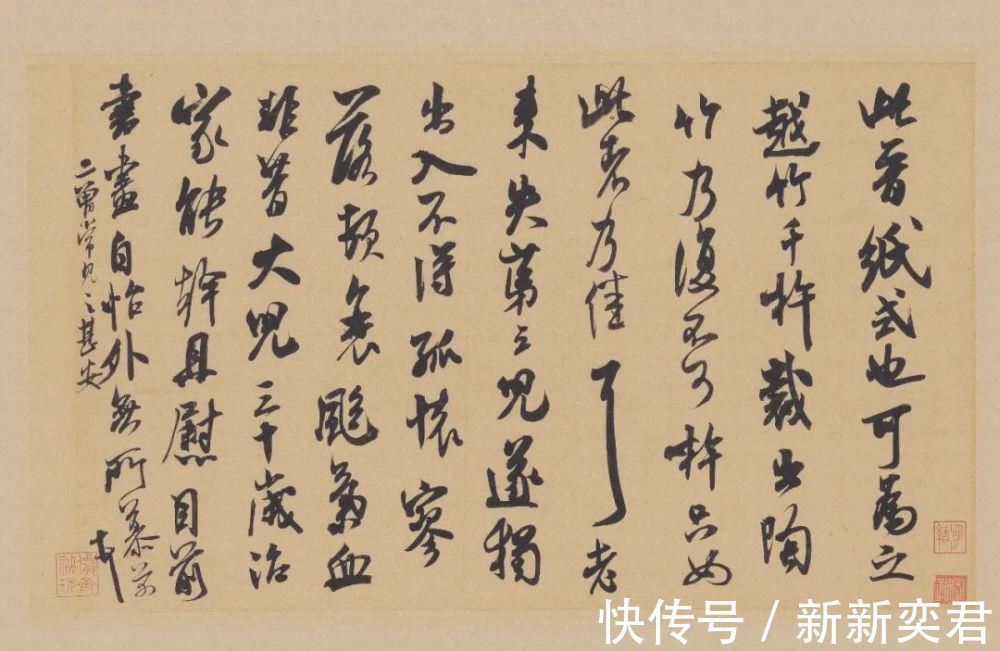 此晉紙式也可為之
越竹千杵裁出陶
竹乃復不可杵只如
此者乃佳耳老
來失第三兒遂獨
出入不得孤懷寥
落頓衰颯氣血
非昔大兒三十歲治
家能幹且慰目前
書畫自怡外無所慕芾
二曾常見之甚安
快传号 / 新新奕君